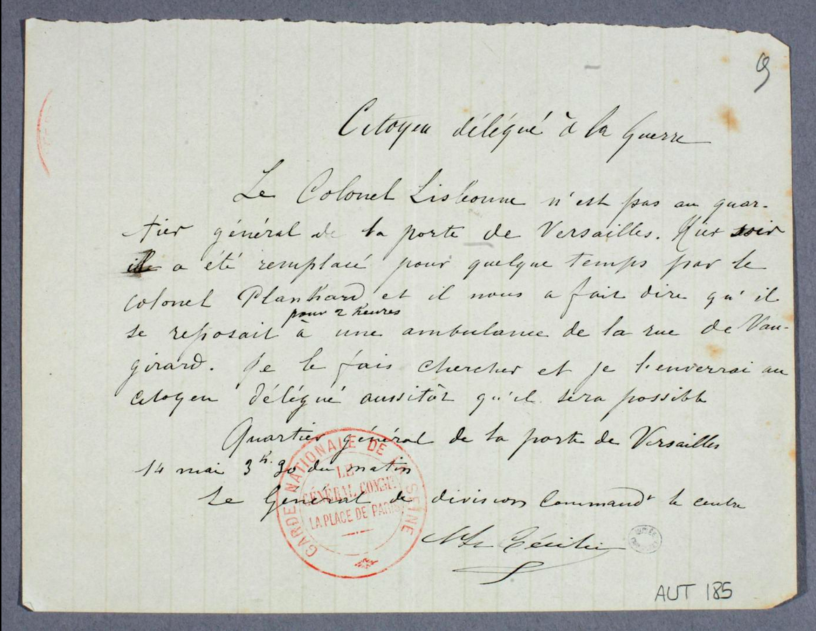 Citoyen délégué à la Guerre
Le Colonel Lisbonne n'est pas au quar-
tier général de la porte de Versailles. Hier soir
il a été remplacé pour quelque temps par le
colonel Planhard et il nous a fait dire qu'il
pour 2 heures
se reposait à une ambulance de la rue de Vau-
girard. Je le fais chercher et je l'enverrai au
citoyen délégué aussitôt qu'il sera possible
Quartier général de la porte de Versailles
14 mai 3h.30 du matin
Le Général de division Command^t le centre
La Cécilia
GARDE NATIONALE DE SEINE
LE
GÉNÉRAL COMM
LA PLACE DE PARIS
AUT 185